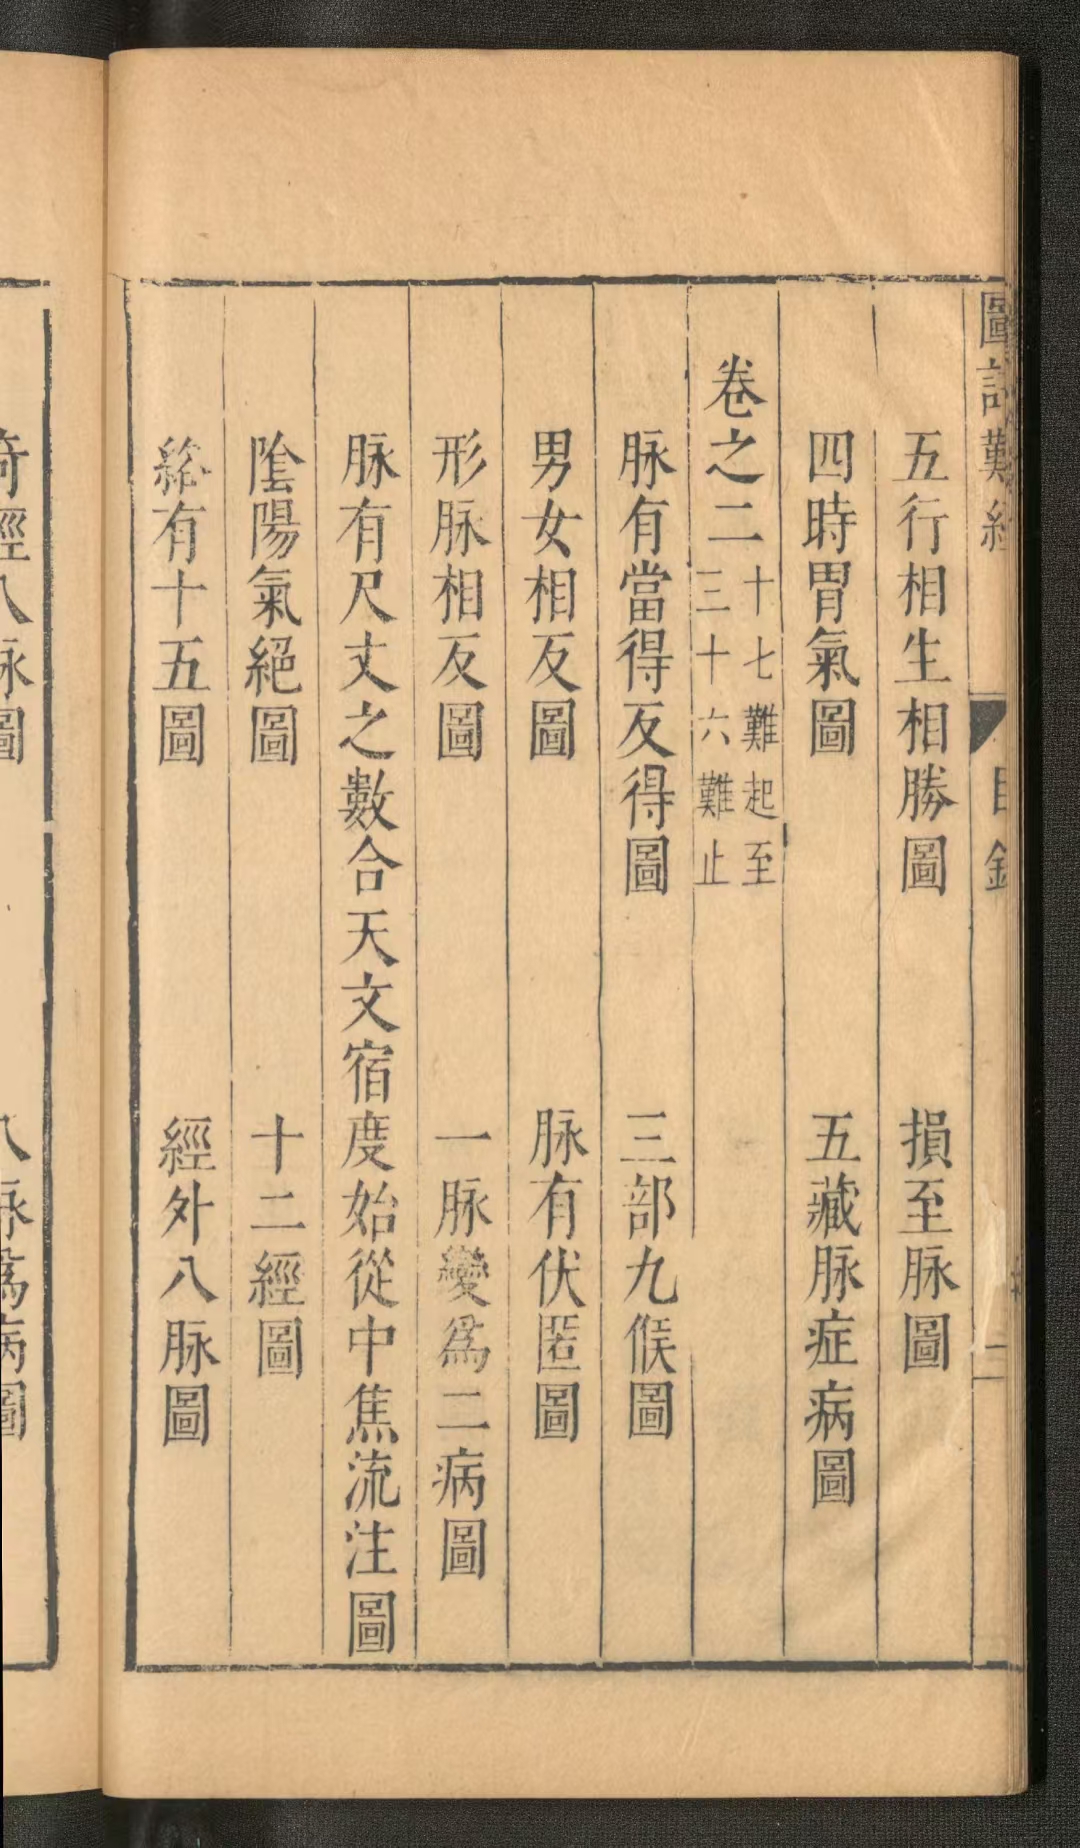 圖註難經
目錄
二
五行相生相勝圖　損至脉圖
四時胃氣圖　五藏脉症病圖
卷之二十七難起至三十六難止
脉有當得反得圖　三部九候圖
男女相反圖　脉有伏匿圖
形脉相反圖　一脉變爲二病圖
脉有尺丈之數合天文宿度始從中焦流注圖
陰陽氣絕圖　十二經圖
絡有十五圖　經外八脉圖
奇經八脉圖　八脉爲病圖